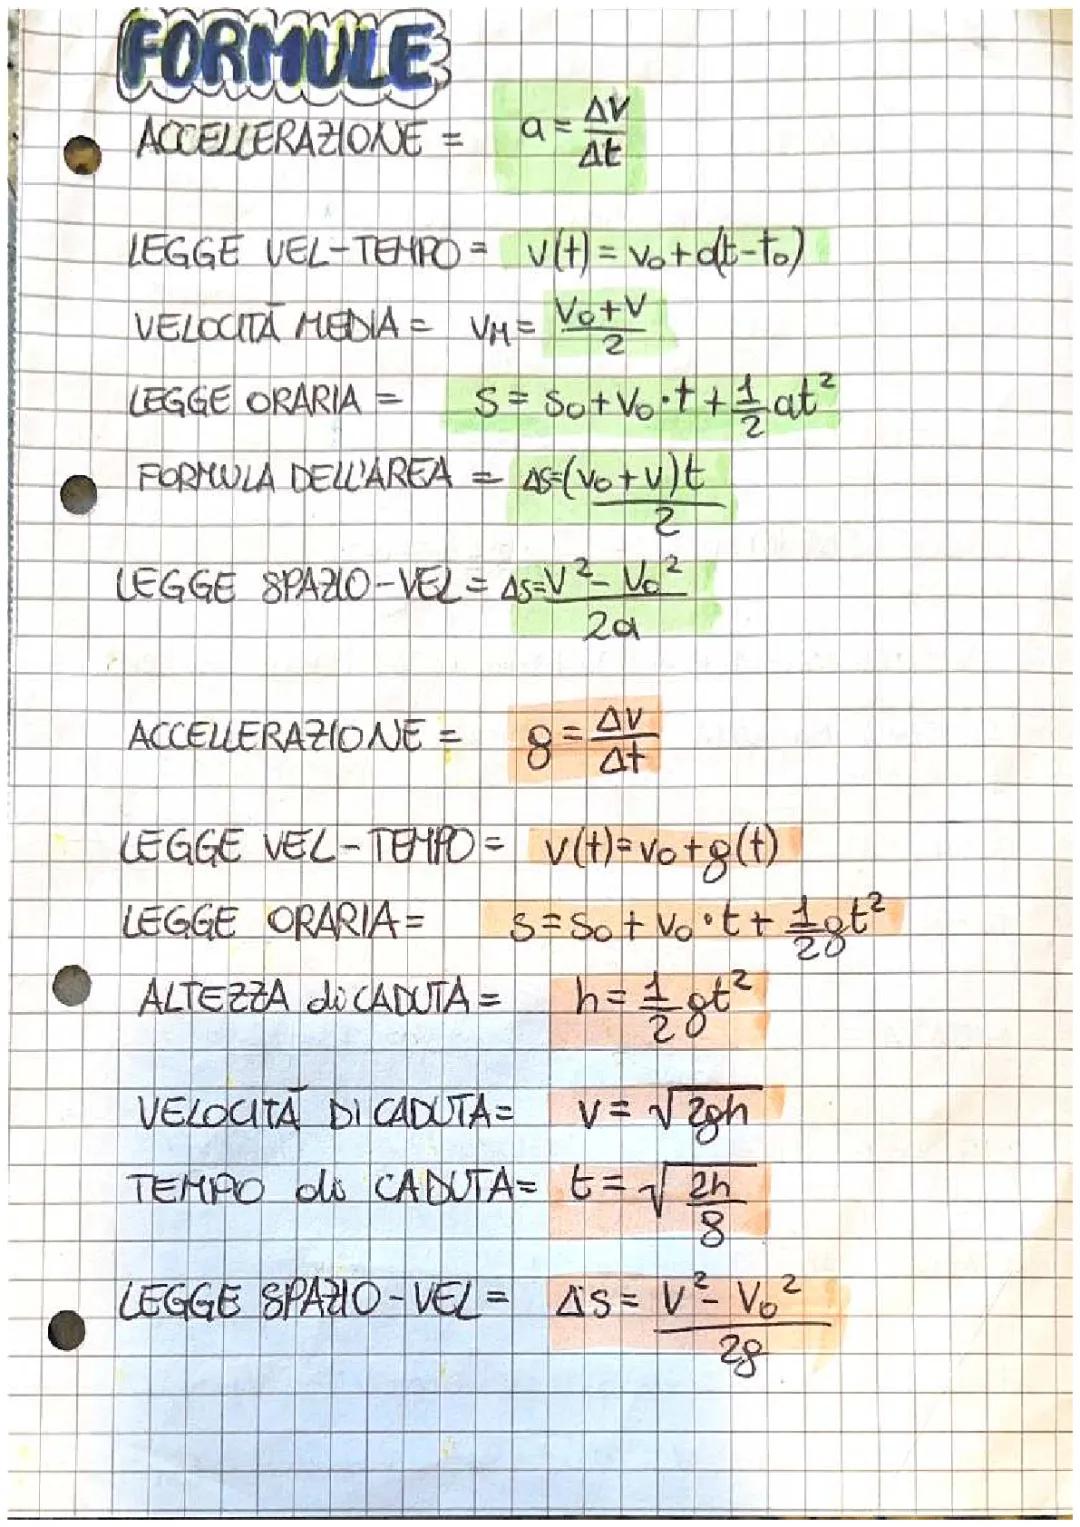 FORMULE
ACCELLERAZIONE = a = ΔV/Δt
LEGGE VEL-TEMPO = V(t) = V₀ + a(t-t₀)
VELOCITÀ MEDIA = VM = V₀+V/2
LEGGE ORARIA = S = S₀ + V₀·t + 1/2 at²
FORMULA DELL'AREA = ΔS=(V₀+V)t/2
LEGGE SPAZIO-VEL = ΔS=V²-V₀²/2a
ACCELLERAZIONE = g = ΔV/Δt
LEGGE VEL-TEMPO = V(t)=V₀+g(t)
LEGGE ORARIA = S = S₀ + V₀·t + 1/2 gt²
ALTEZZA di CADUTA = h = 1/2 gt²
VELOCITÀ DI CADUTA = V = √2gh
TEMPO di CADUTA = t = √2h/g
LEGGE SPAZIO-VEL = ΔS = V²-V₀²/2g